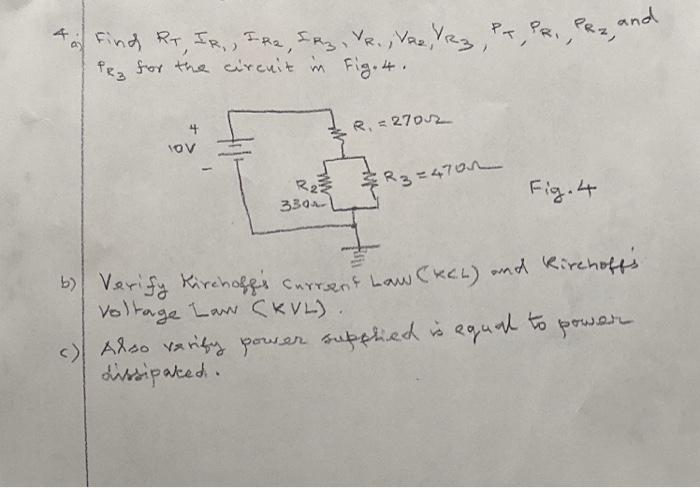 4. a) Find RT, IR1, IR2, IR3, VR1, VR2, VR3, PT, PR1, PR2, and
PR3 for the circuit in Fig.4.
+
10V
-
R1 = 270Ω
R2
330Ω
R3 = 470Ω
Fig.4
b) Verify Kirchoff's Current Law (KCL) and Kirchoff's
Voltage Law (KVL).
c) Also verify power supplied is equal to power
dissipated.